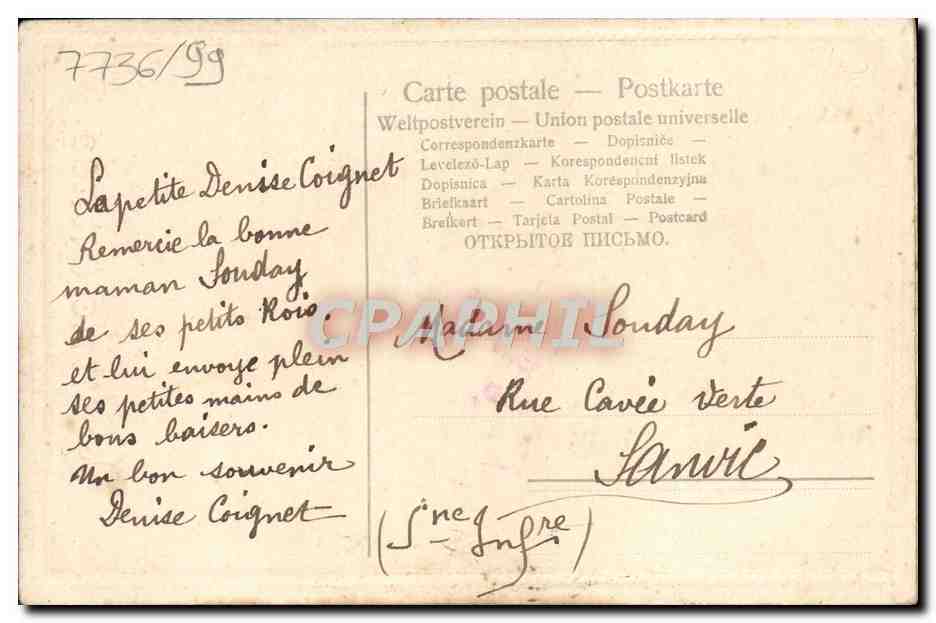 7736/99
Carte postale — Postkarte
Weltpostverein — Union postale universelle
Correspondenzkarte — Dopisnice —
Levelező-Lap — Korespondencni listek
Dopisnica — Karta Korespondenzyjna
Briefkaart — Cartolina Postale —
Brefkort — Tarjeta Postal — Postcard
ОТКРЫТОЕ ПИСЬМО.
La petite Denise Coignet
Remercie la bonne
maman Souday
de ses petits Rois.
et lui envoye plein
ses petites mains de
bons baisers.
Un bon souvenir
Denise Coignet
CPAPHIL
Madame Souday
Rue Cavée Verte
Sanvic
(Sne Infre)